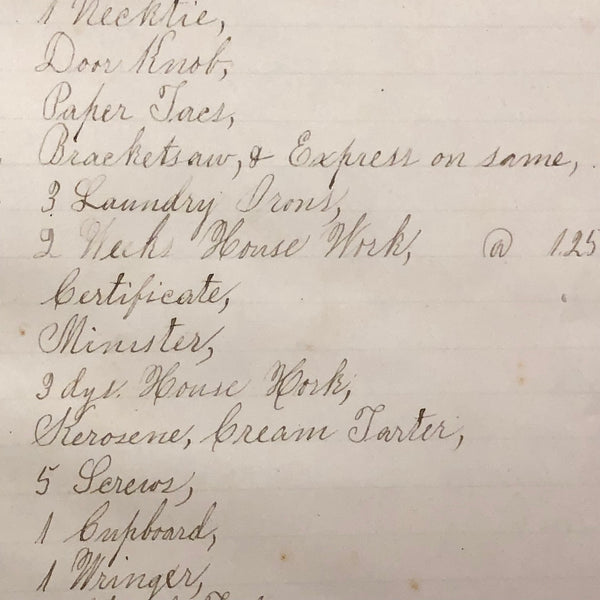 1 Necktie,
Door Knob,
Paper Tacs,
Bracketsaw, & Express on same,
3 Laundry Irons,
2 Weeks House Work, @ 1.25
Certificate,
Minister,
3 dys. House Work,
Kerosene, Cream Tarter,
5 Screws,
1 Cupboard,
1 Wringer,